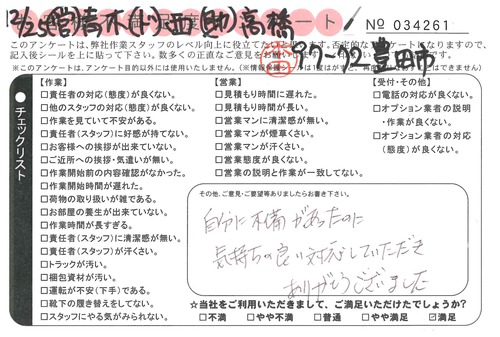 12/25 (営)青木 (ト)西 (助)高橋
ート
No 034261
このアンケートは、弊社作業スタッフのレベル向上に役立て
記入後シールを上に貼って下さい。数多くの正直なご意見をお
※このアンケートは、アンケート目的以外には使用いたしません。
37-72 豊田市
チェックリスト
【作業】
□責任者の対応(態度)が良くない。
□他のスタッフの対応(態度)が良くない。
□作業を見ていて不安がある。
□責任者(スタッフ)に好感が持てない。
□お客様への挨拶が出来ていない。
□ご近所への挨拶・気遣いが無い。
□作業開始前の内容確認がなかった。
□作業開始時間が遅れた。
□荷物の取り扱いが雑である。
□お部屋の養生が出来ていない。
□作業時間が長すぎる。
□責任者(スタッフ)に清潔感が無い。
□責任者(スタッフ)が汗くさい。
□トラックが汚い。
□梱包資材が汚い。
□運転が不安(下手)である。
□靴下の履き替えをしてない。
□スタッフにやる気がみられない。
【営業】
□見積もり時間に遅れた。
□見積もり時間が長い。
□営業マンに清潔感が無い。
□営業マンが煙草くさい。
□営業マンが汗くさい。
□営業態度が良くない。
□営業の説明と作業が一致してない。
【受付・その他】
□電話の対応が良くない。
□オプション業者の説明
・作業が良くない。
□オプション業者の対応
(態度)が良くない。
その他、ご意見・ご要望等ありましたらお書き下さい。
自分に不備があったのに
気持ちの良い対応していただき
ありがとうございました
☆当社をご利用いただきまして、ご満足いただけてしょうか?
□不満 □やや不満 □普通 □やや満足 ☑満足